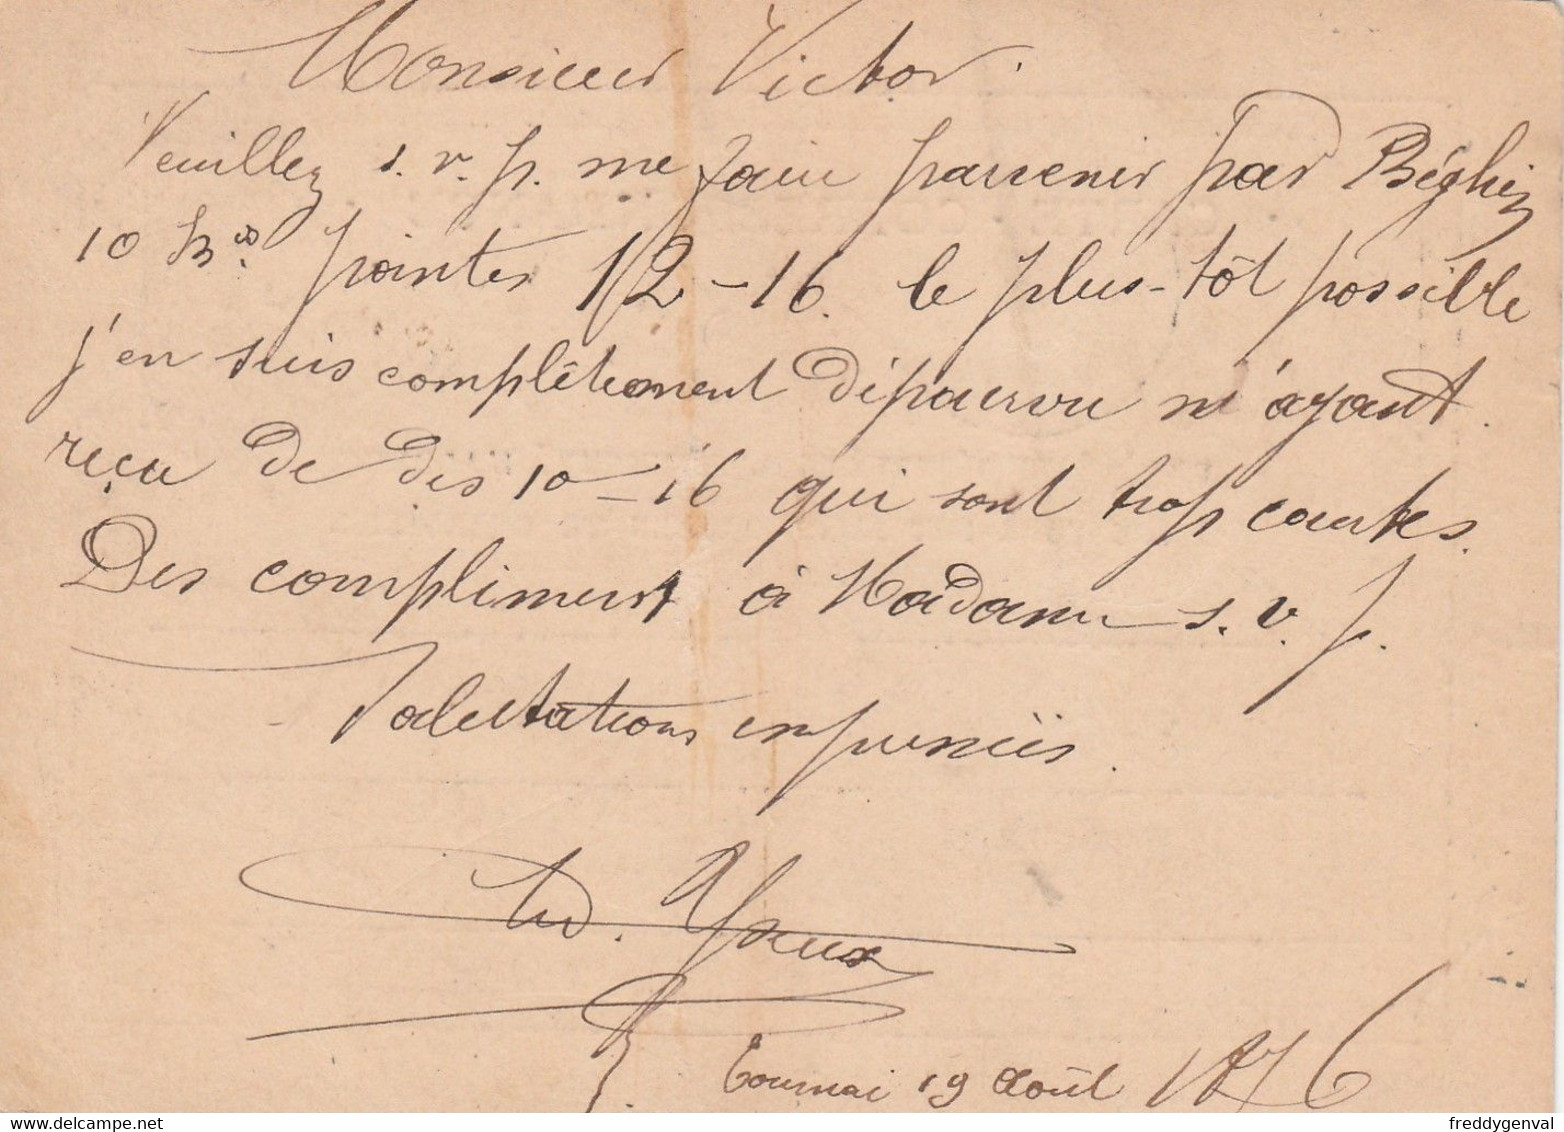 Monsieur Victor.
Veuillez s. v. p. me faire parvenir par Béghin
10 pointes 12-16. le plus-tôt possible
j'en suis complètement dépourvu n'ayant
reçu de des 10-16 qui sont trop courtes.
Des compliment à Madame s. v. p.
Salutations empressées.
Ad.
Tournai 19 août 1876
freddygenval